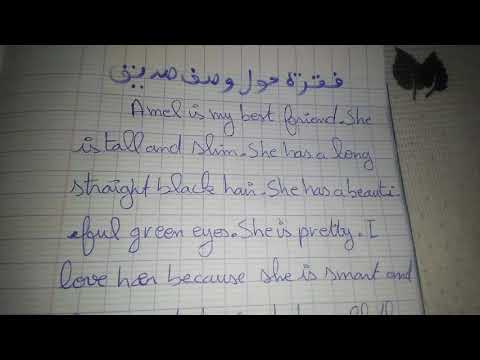 فقرة حول وصف صديق
Amel is my best friend. She
is tall and slim. She has a long
straight black hair. She has a beauti
ful green eyes. She is pretty. I
love her because she is smart and